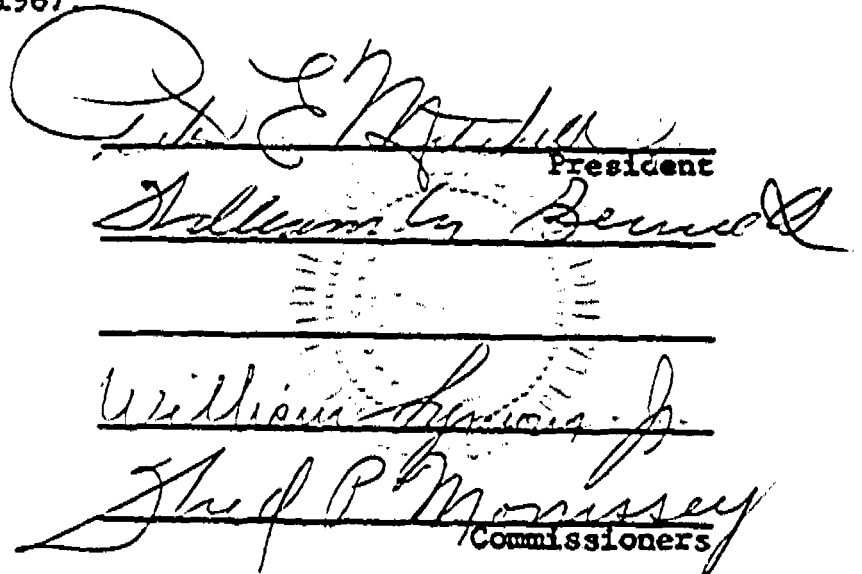 1967.
Peter E Mitchell
President
William M Bennett
William Symons Jr.
Fred P Morrissey
Commissioners